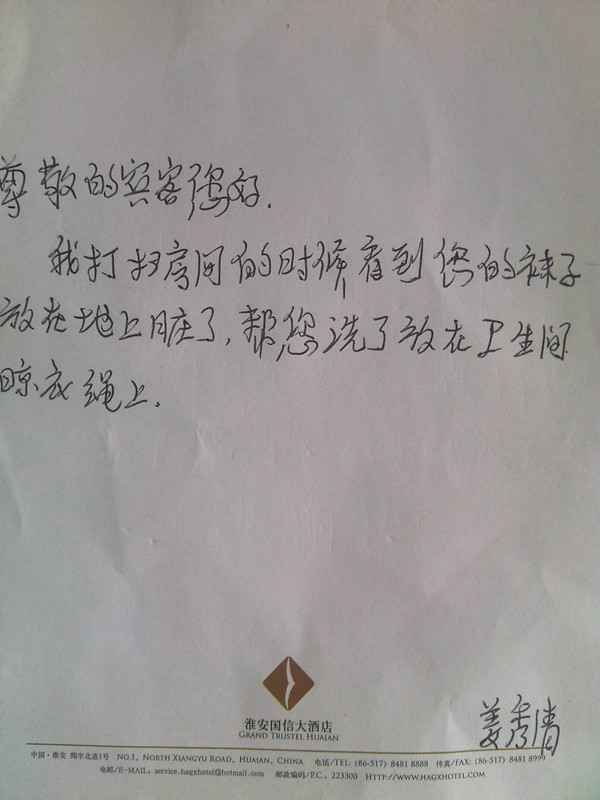 尊敬的宾客您好.
我打扫房间的时候看到您的袜子
放在地上脏了,帮您洗了放在卫生间
晾衣绳上.
姜秀清
淮安国信大酒店
GRAND TRUSTEL HUAIAN
中国·淮安 翔宇北道1号 NO.1, NORTH XIANGYU ROAD, HUAIAN, CHINA 电话/TEL: (86-517) 8481 8888 传真/FAX: (86-517) 8481 8999
电邮/E-MAIL: service.hagxhotel@hotmail.com 邮政编码/P.C.: 223300 HTTP://WWW.HAGXHOTEL.COM